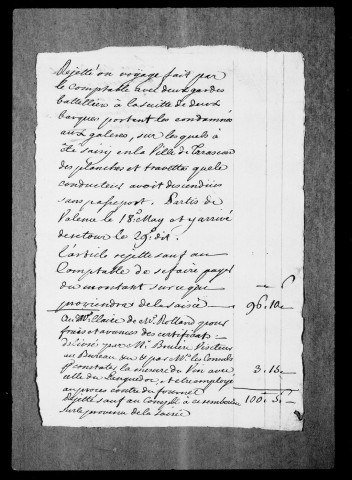 Rejetté un voyage fait par
le Comptable avec deux gardes
battellier à la suitte de deux
barques portent les condamnés
aux galeres, sur lesquels à
été saisy en la Ville de Tarascon
des planches et travettes que le
conducteur avoit descendües
sans passeport. Parties de
Valence le 18e. May et y arrivé
de retour le 29e. dit.
l'article rejetté sauf au
Comptable de se faire payer
du montant sur ce que
proviendra de la saisie 96. 10
Au Me. Claire de Mr. Rolland pour
frais et avances des certificats
délivrés par Mr. Visiteur
au Bureau par Mrs. les Consuls
constater la mesure du Vin avec
celle du Languedoc, et employé
au procès contre du fournel 3. 15
Rejetté sauf au Compt. à s'en rembourser 100. 5
sur le provenu de la saisie